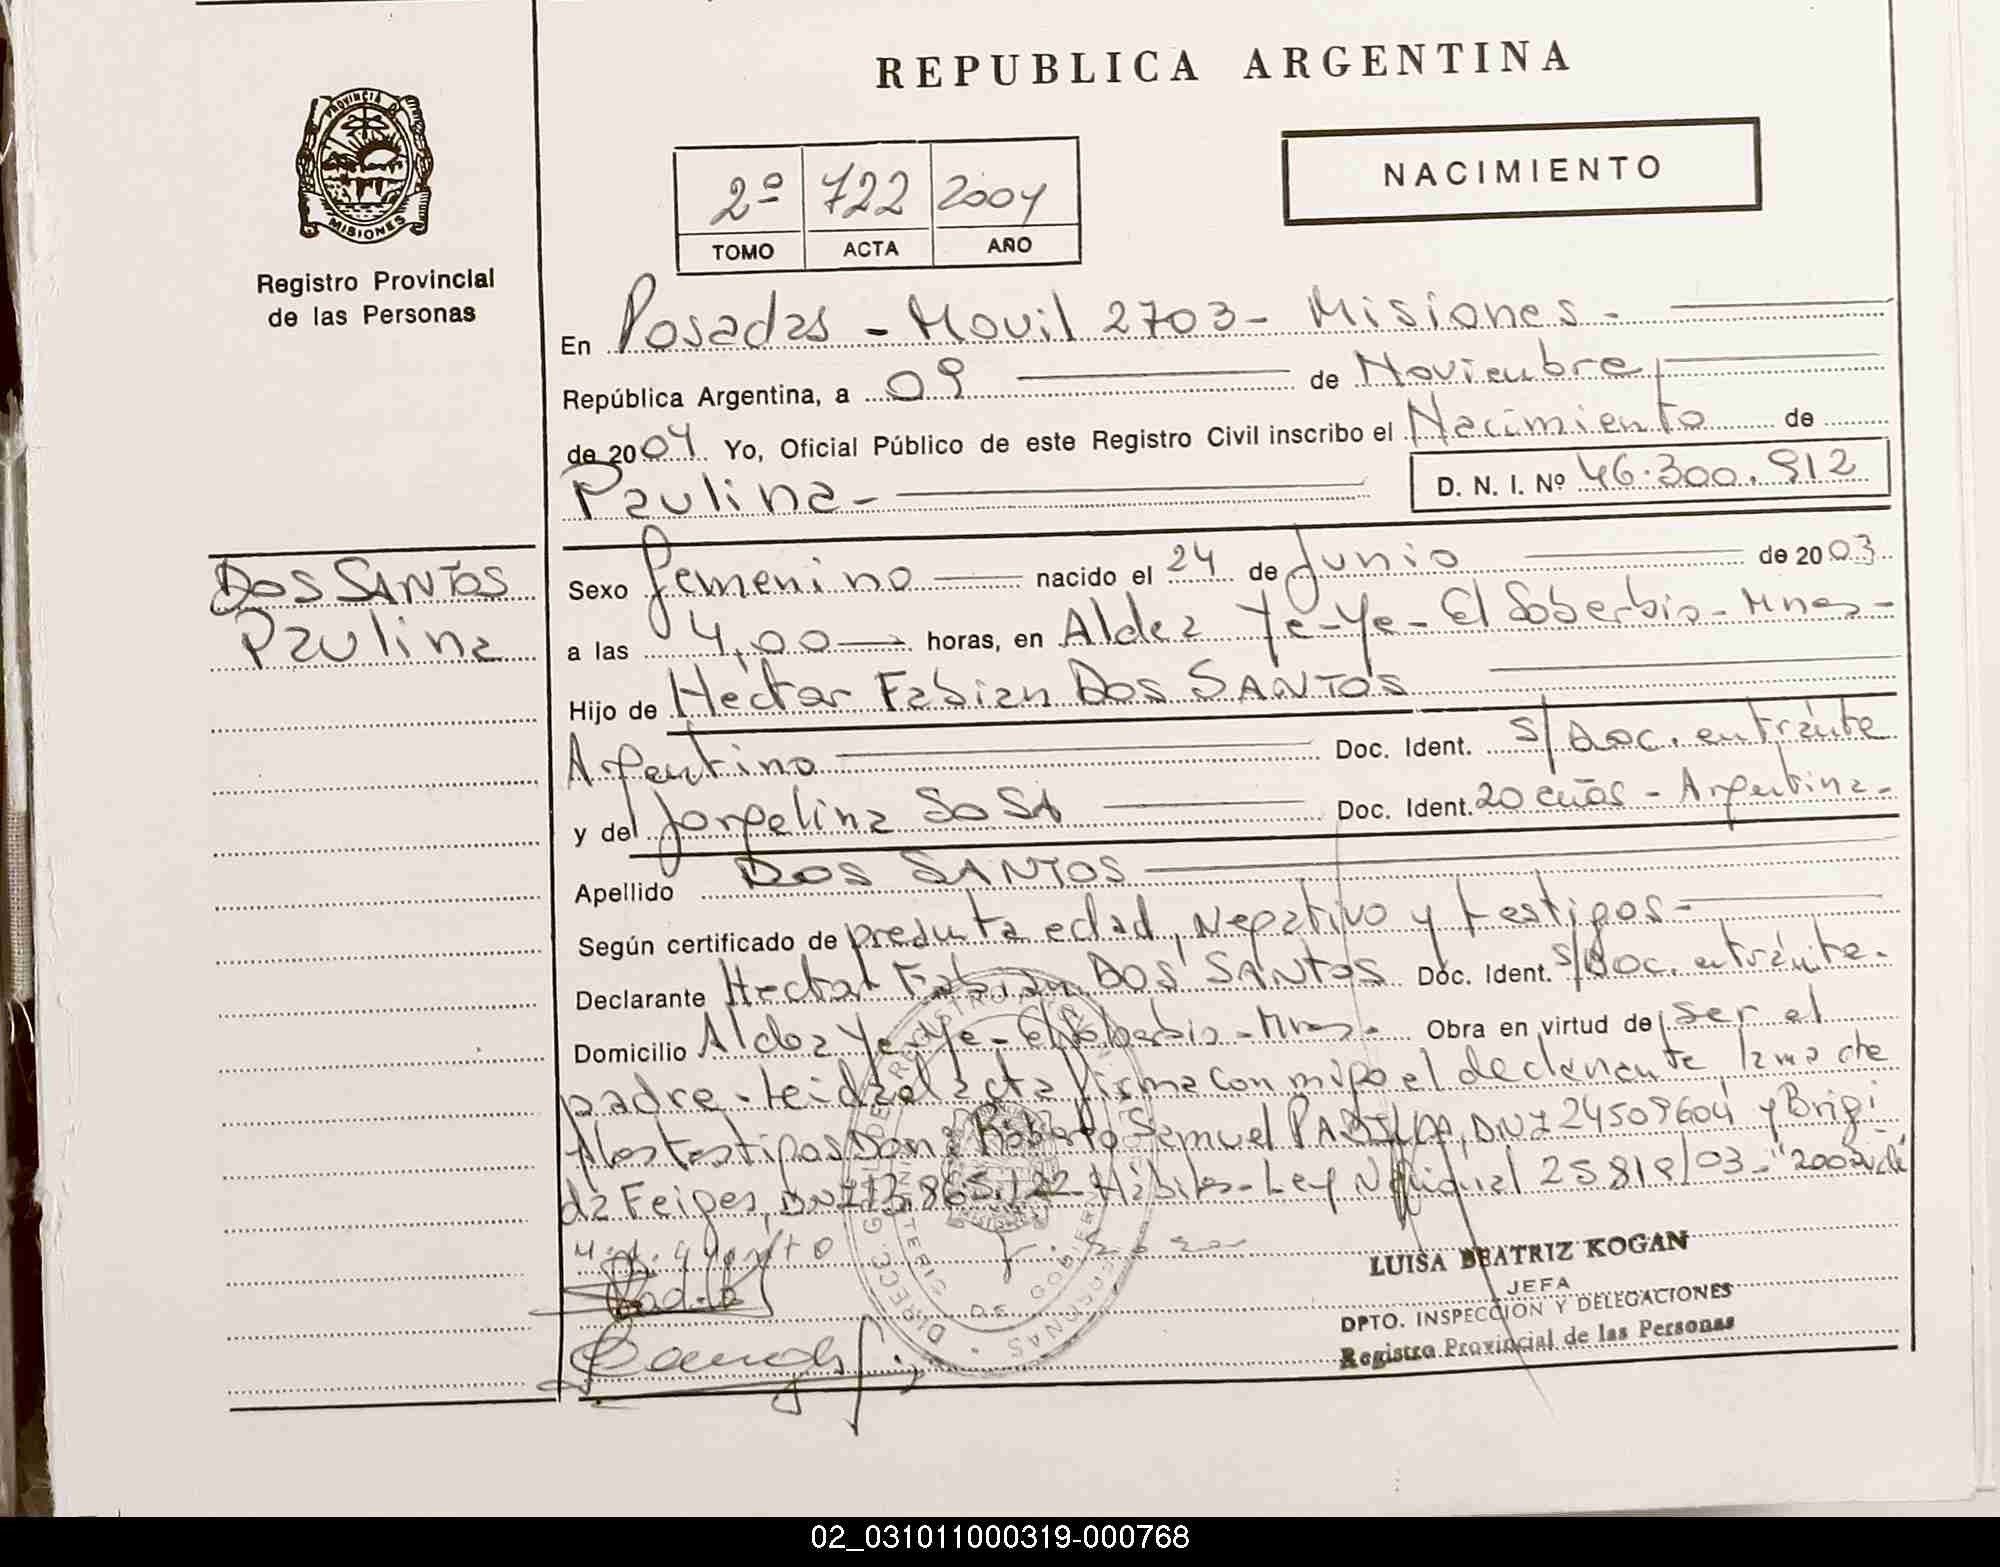 REPUBLICA ARGENTINA
PROVINCIA DE
MISIONES
Registro Provincial
de las Personas
NACIMIENTO
2º 722 2004
TOMO ACTA AÑO
En Posadas - Movil 2703 - Misiones -
República Argentina, a 09 de Noviembre
de 2004 Yo, Oficial Público de este Registro Civil inscribo el Nacimiento de
Paulina - D. N. I. Nº 46.300.912
DOS SANTOS
Paulina
Sexo femenino nacido el 24 de Junio de 2003
a las 4,00 horas, en Aldea Ye-Ye - El Soberbio - Mnes -
Hijo de Hectar Fabian DOS SANTOS
Argentino Doc. Ident. s/ Doc.
y de Jorgelina SOSA Doc. Ident. 20 años - Argentina -
Apellido DOS SANTOS
Según certificado de presunta edad, Negativo y testigos -
Declarante Hectar Fabian DOS SANTOS Doc. Ident. s/Doc.
Domicilio Aldea Ye-Ye - El Soberbio - Mnes - Obra en virtud de ser el
padre - Leida el acta firma conmigo el declarante,
testigos Don: Roberto Samuel PADILLA, DNI 24509604 y Brigi
da Feiges, DNI 13.865.122 - Hábiles - Ley Nacional 25819/03 -
LUISA BEATRIZ KOGAN
JEFA
DPTO. INSPECCION Y DELEGACIONES
Registro Provincial de las Personas
02_031011000319-000768